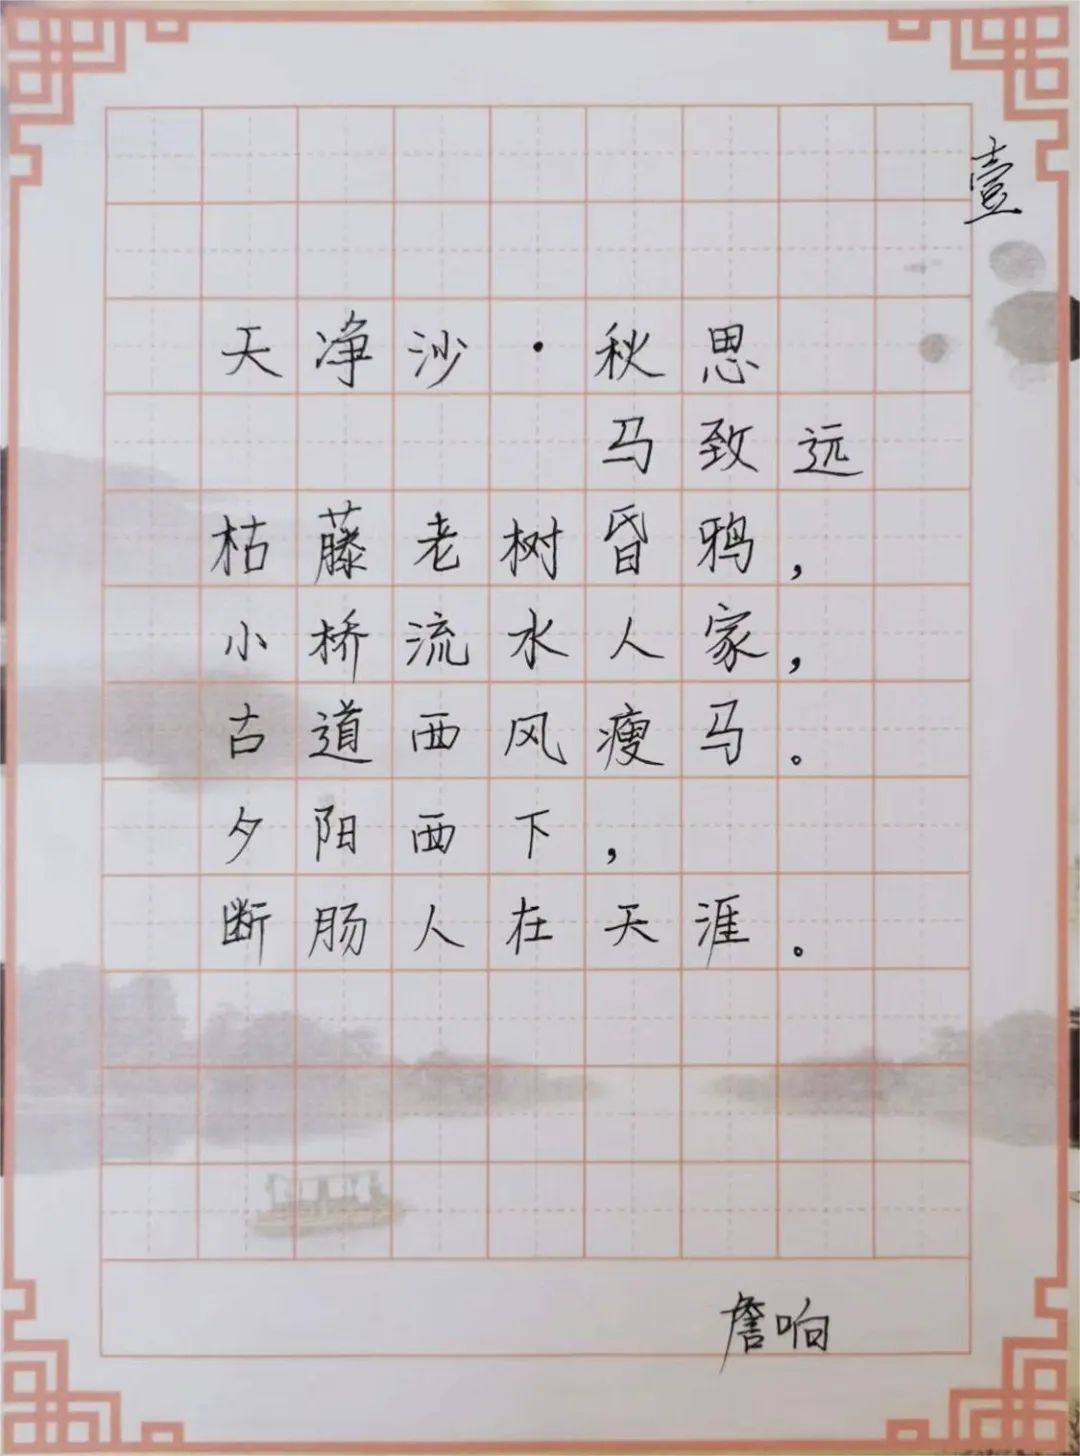 壹
天净沙·秋思
马致远
枯藤老树昏鸦，
小桥流水人家，
古道西风瘦马。
夕阳西下，
断肠人在天涯。
詹响